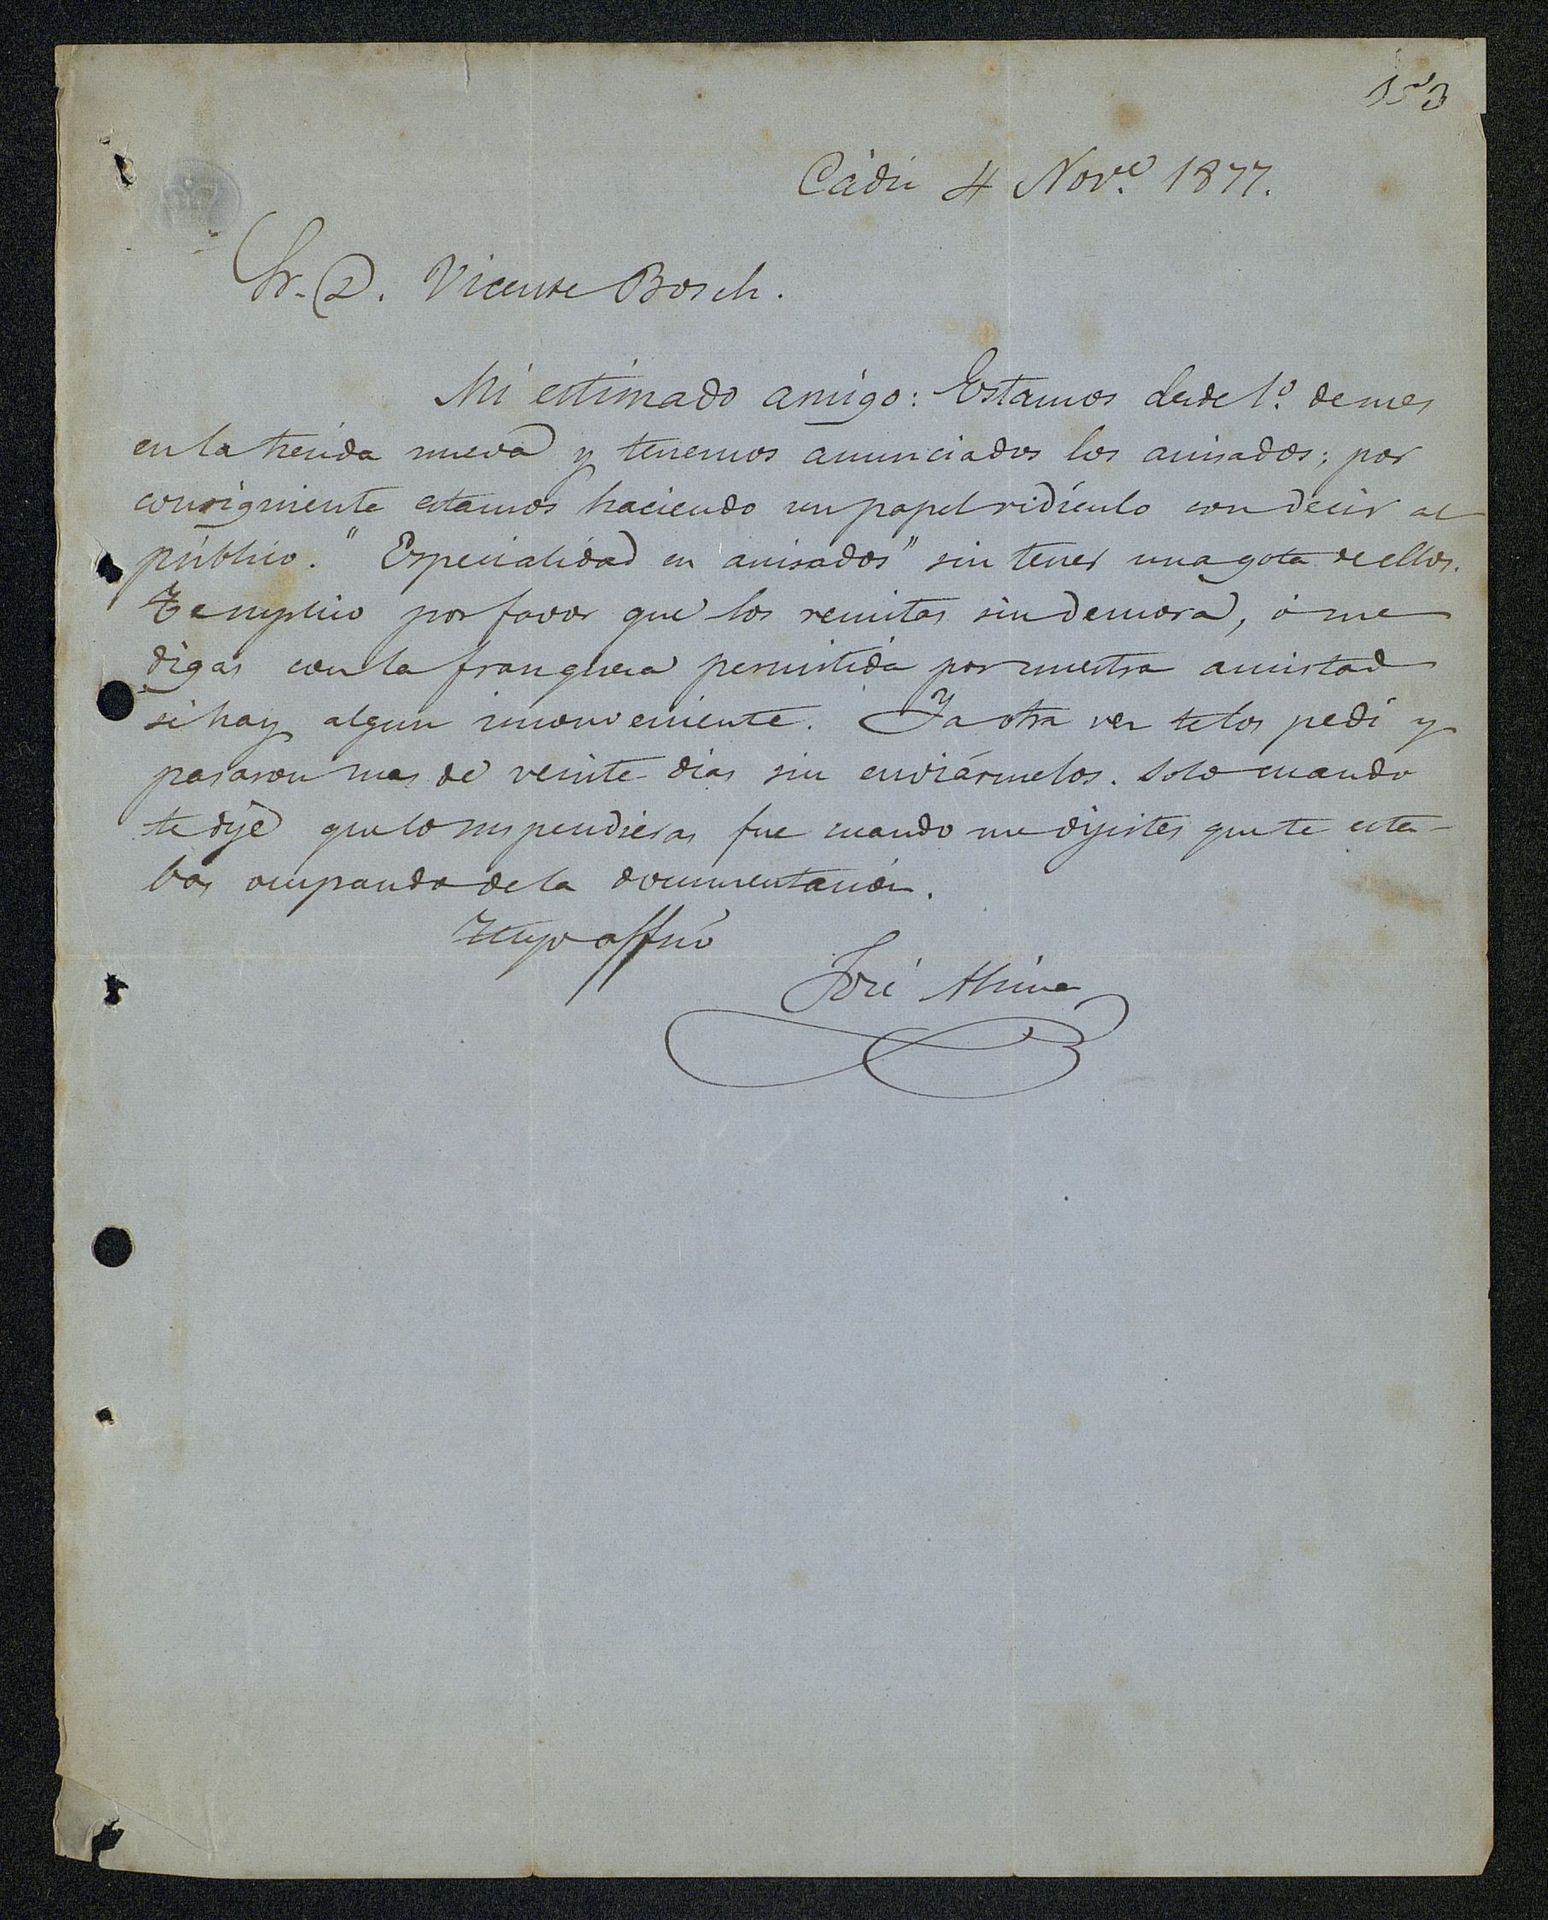 153
Cádiz 4 Nov.e 1877.
Sr. D. Vicente Bosch.
Mi estimado amigo: Estamos desde 1.º de mes
en la tienda nueva y tenemos anunciados los anisados; por
consigniente estamos haciendo un papel ridículo con decir al
público. "Especialidad en anisados" sin tener una gota de ellos.
Te suplico por favor que los remitas sin demora, ó me
digas con la franqueza permitida por nuestra amistad
si hay algun inconveniente. Ya otra vez te los pedí y
pasaron mas de veinte dias sin enviármelos. Solo cuando
te dije que lo suspendieras fue cuando me dijistes que te esta-
bas ocupando de la documentación.
Tuyo affmo
José Alsina